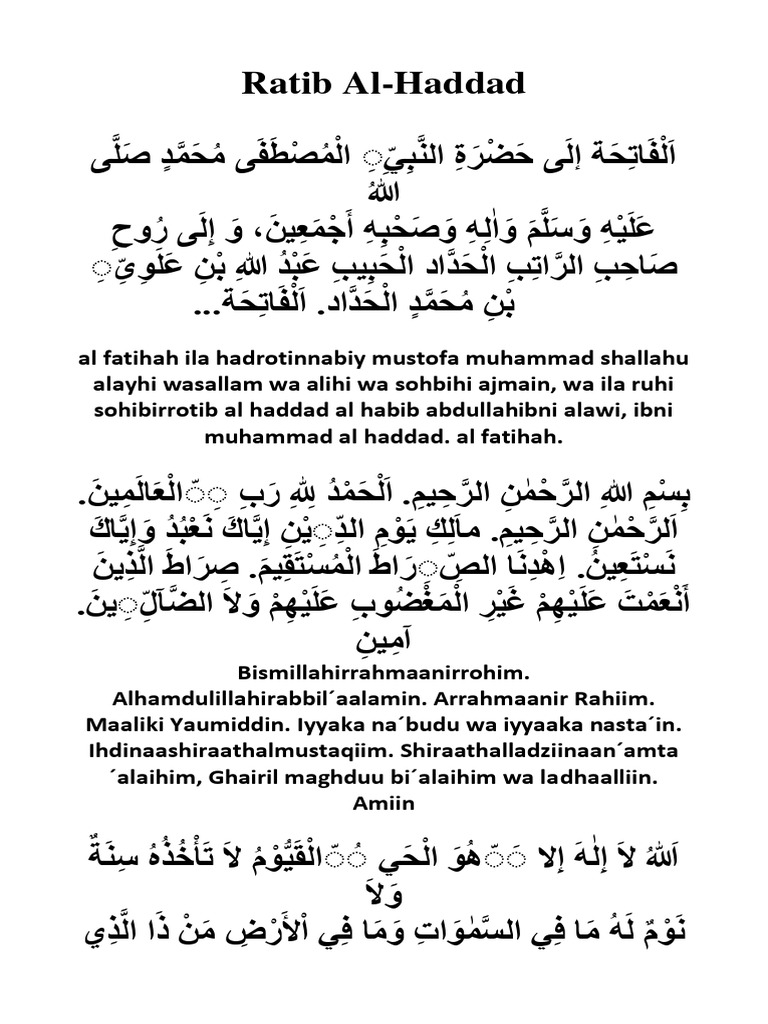 Ratib Al-Haddad
اَلْفَاتِحَة إلَى حَضْرَةِ النَّبِيِّ الْمُصْطَفَى مُحَمَّدٍ صَلَّى
اللهُ
عَلَيْهِ وَسَلَّمَ وَاٰلِهِ وَصَحْبِهِ أَجْمَعِينَ، وَ إِلَى رُوحِ
صَاحِبِ الرَّاتِبِ الْحَدَّاد الْحَبِيبِ عَبْدُ اللهِ بْنِ عَلَوِيِّ
بْنِ مُحَمَّدٍ الْحَدَّاد. اَلْفَاتِحَة...
al fatihah ila hadrotinnabiy mustofa muhammad shallahu
alayhi wasallam wa alihi wa sohbihi ajmain, wa ila ruhi
sohibirrotib al haddad al habib abdullahibni alawi, ibni
muhammad al haddad. al fatihah.
بِسْمِ اللهِ الرَّحْمٰنِ الرَّحِيمِ. اَلْحَمْدُ لِلهِ رَبِ ِّالْعَالَمِينَ.
اَلرَّحْمٰنِ الرَّحِيمِ. ماَلِكِ يَوْمِ الدِّيْنِ إِيَّاكَ نَعْبُدُ وَإِيَّاكَ
نَسْتَعِينُ. اِهْدِنَا الصِّرَاطَ الْمُسْتَقِيمَ. صِرَاطَ الَّذِينَ
أَنْعَمْتَ عَلَيْهِمْ غَيْرِ الْمَغْضُوبِ عَلَيْهِمْ وَلاَ الضَّآلِّينَ.
آمِينِ
Bismillahirrahmaanirrohim.
Alhamdulillahirabbil´aalamin. Arrahmaanir Rahiim.
Maaliki Yaumiddin. Iyyaka na´budu wa iyyaaka nasta´in.
Ihdinaashiraathalmustaqiim. Shiraathalladziinaan´amta
´alaihim, Ghairil maghduu bi´alaihim wa ladhaalliin.
Amiin
اَللهُ لاَ إِلٰهَ إِلا َّهُوَ الْحَي ُّالْقَيُّوْمُ لاَ تَأْخُذُهُ سِنَةٌ
وَلاَ
نَوْمٌ لَهُ مَا فِي السَّمٰوَاتِ وَمَا فِي اْلأَرْضِ مَنْ ذَا الَّذِي